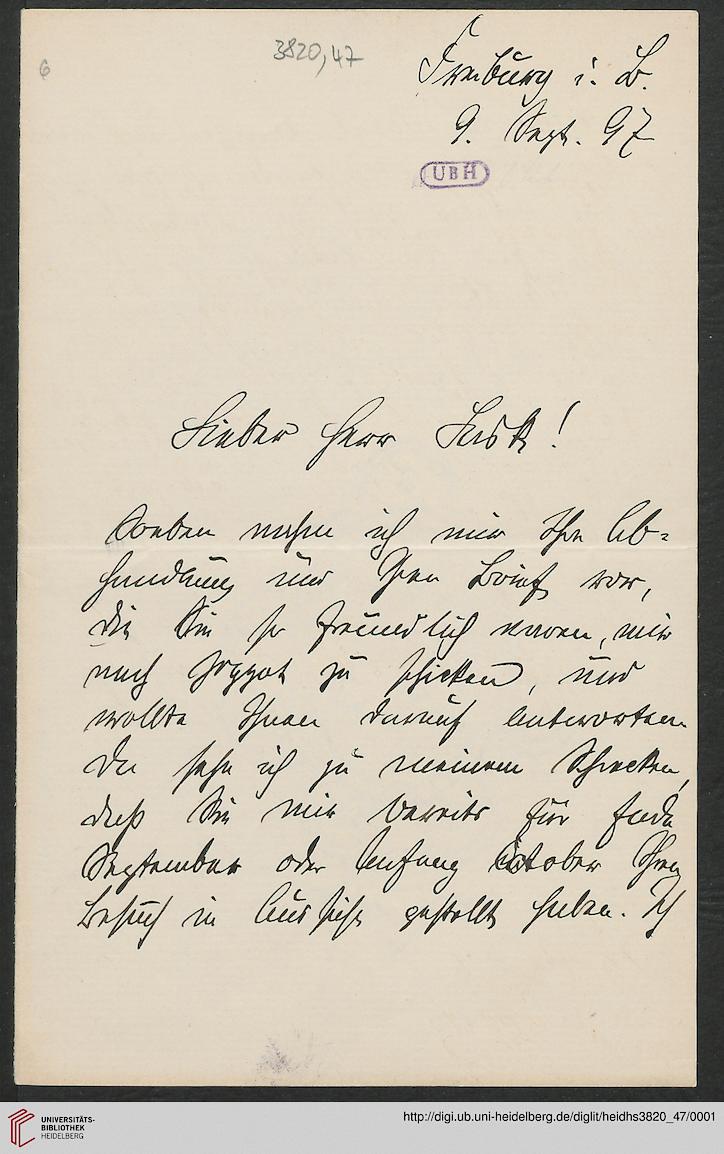 6
3820,47
Freiburg i. B.
9. Sept. 97
UBH
Lieber Herr Lask!
Soeben nehme ich mir Ihre Ab-
handlung und Ihren Brief vor,
die Sie so freundlich waren, mir
nach Zoppot zu schicken, und
wollte Ihnen darauf antworten.
Da sehe ich zu meinem Schrecken,
daß Sie mir bereits für Ende
September oder Anfang October Ihren
Besuch in Aussicht gestellt haben. Ich
UNIVERSITÄTS-
BIBLIOTHEK
HEIDELBERG
http://digi.ub.uni-heidelberg.de/diglit/heidhs3820_47/0001